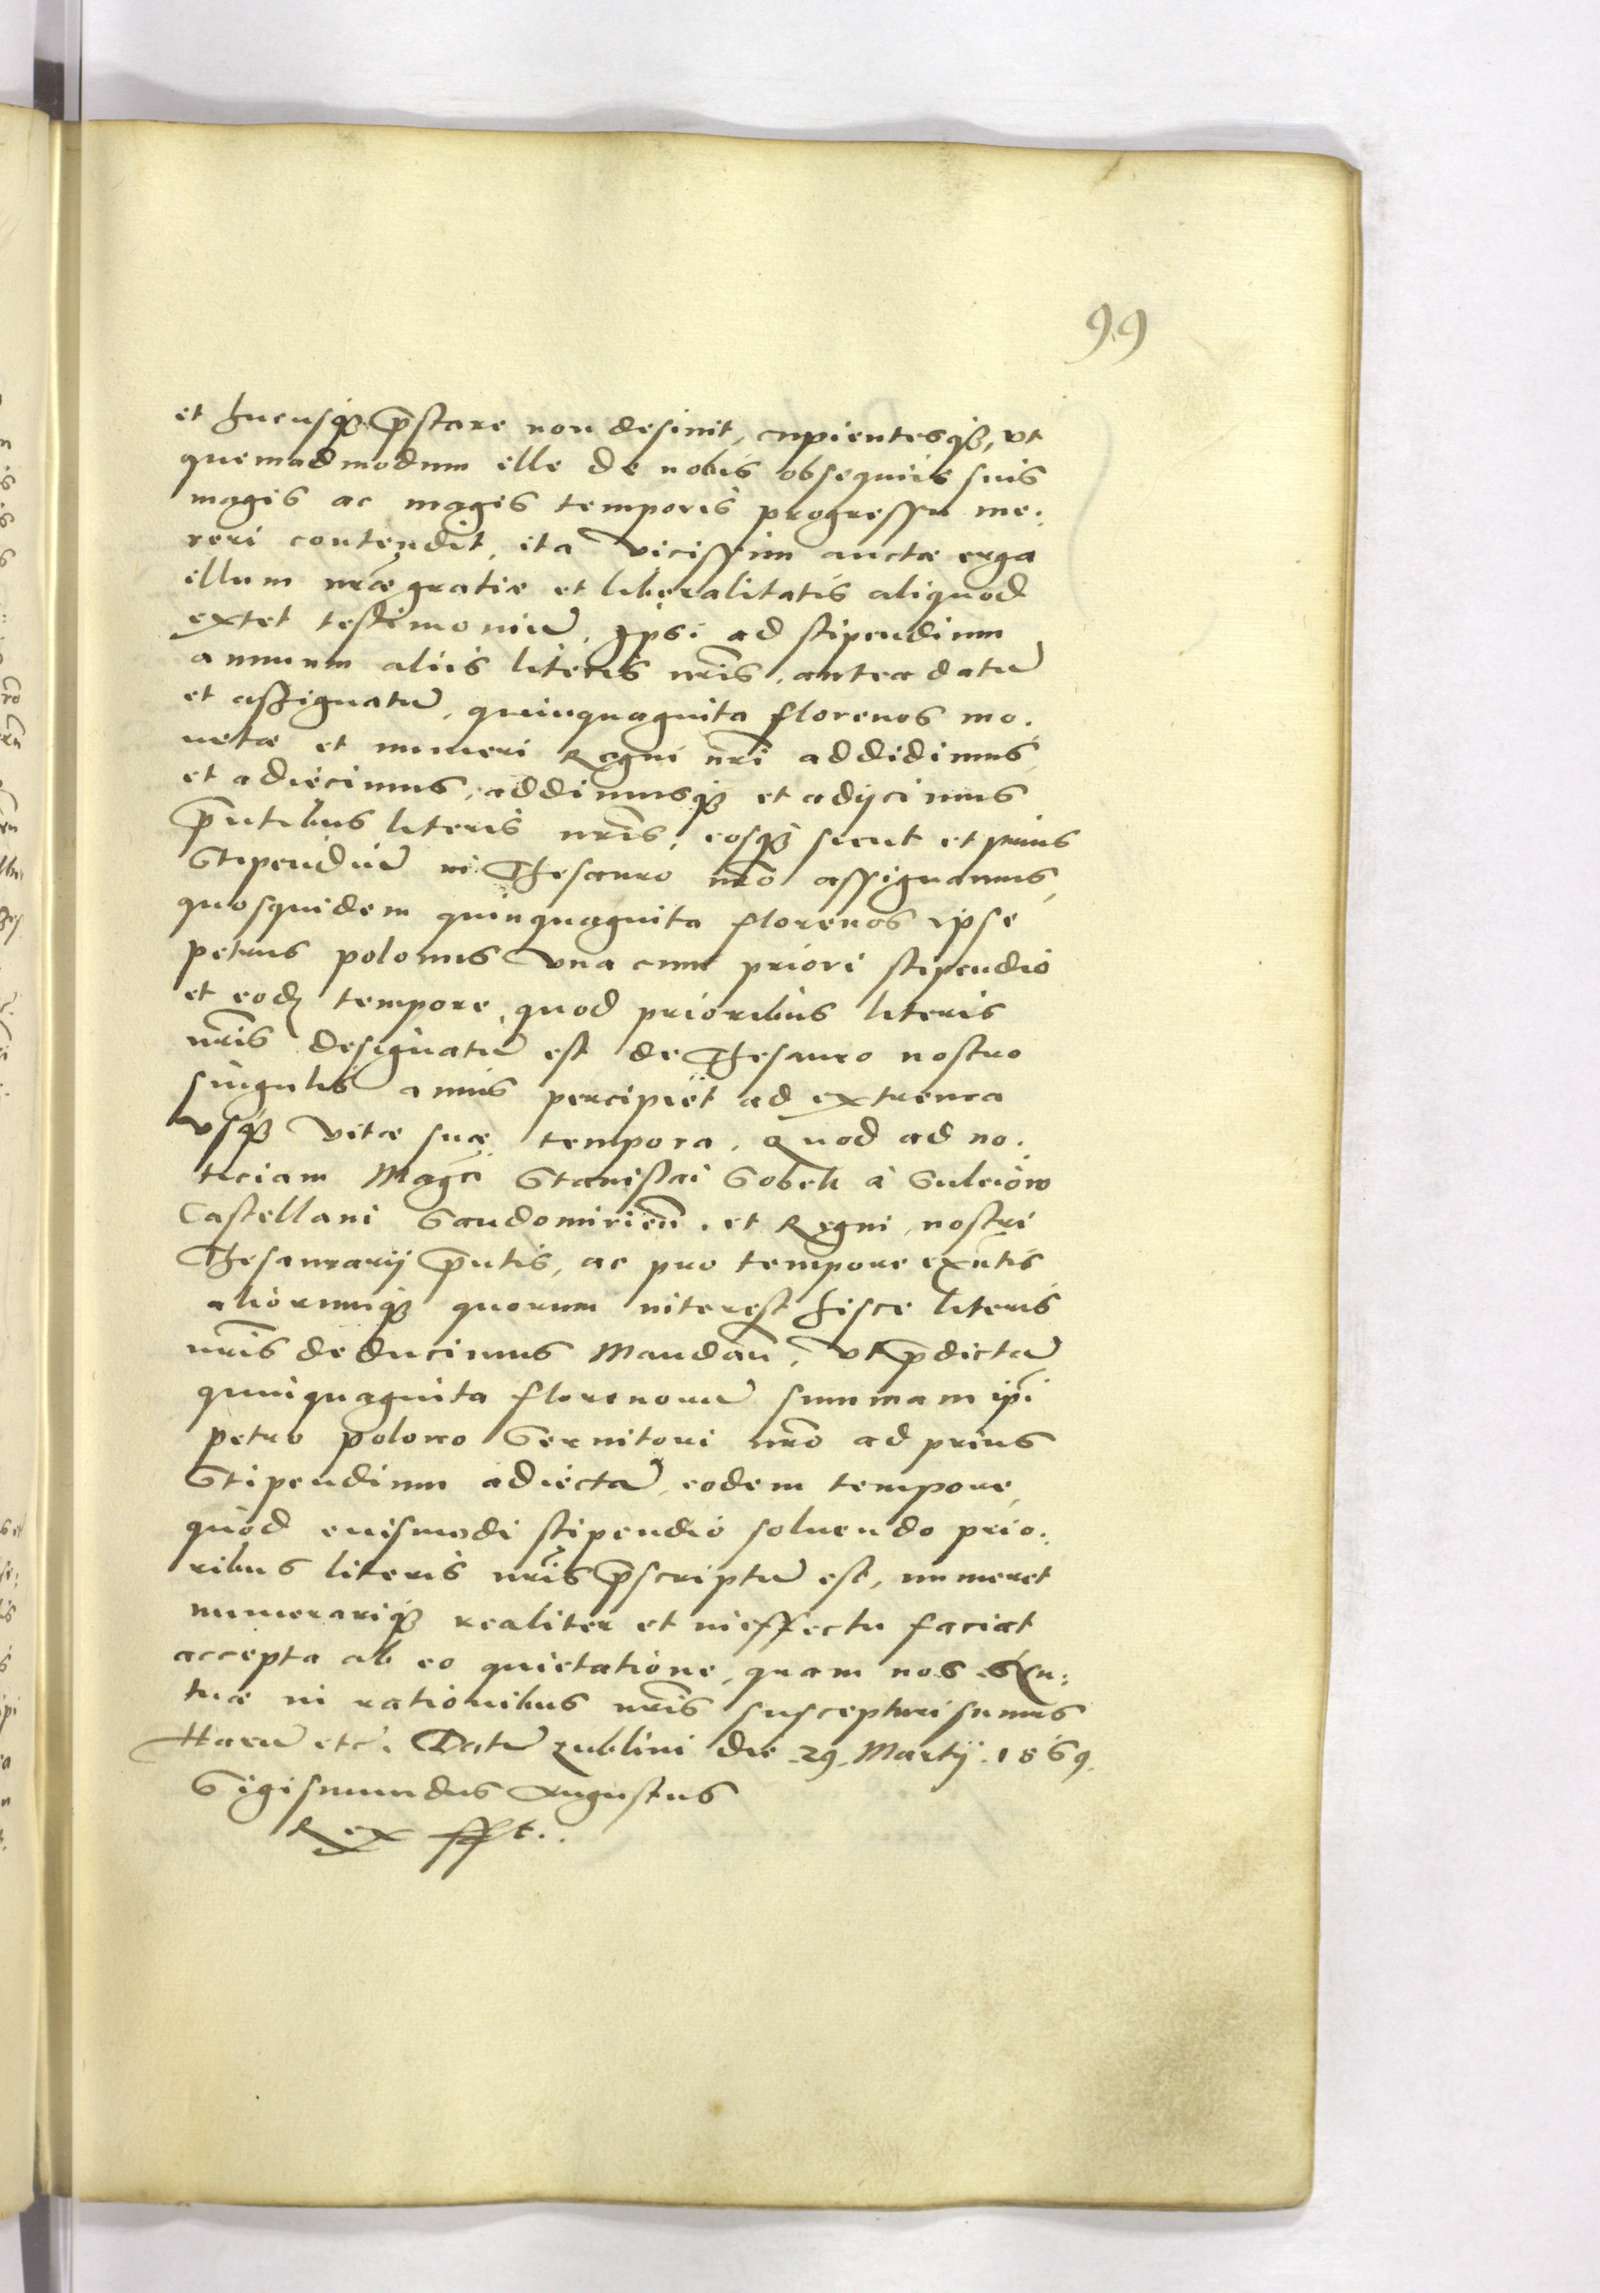 99
et hucusq₃ p̄stare non desinit, cupientesq₃, vt
quemadmodum ille de nobis obsequiis suis
magis ac magis temporis progressu me:
reri contendit, ita vicissim auctæ erga
illum nr̄æ gratiæ et liberalitatis aliquod
extet testimoniū, Ipsi ad stipendium
annuum aliis literis nr̄is, antea datū
et assignatū, quinquaginta florenos mo:
netæ et numeri Regni nr̄i addidimus,
et adiecimus, addimusq₃ et adijcimus
p̄ntibus literis nr̄is, eosq₃ sicut et prius
Stipendiū in Thesauro nr̄o assignamus,
quosquidem quinquaginta florenos ipse
petrus polonus vna cum priori stipendio
et eodē tempore, quod prioribus literis
nr̄is designatū est de Thesauro nostro
singulis annis percipiet ad extrema
vsq₃ vitæ suæ tempora. Quod ad no:
ticiam Mag̃ci Stanislai Sobek à Suleiow
Castellani Sandomirieñ. et Regni nostri
Thesaurarij p̄ntis, ac pro tempore exñtis
aliorumq₃ quorum interest hisce literis
nr̄is deducimus Mandañ, vt p̄dictā
quinquaginta florenorū summam ip̄i
petro polono Seruitori nr̄o ad prius
Stipendium adiectā, eodem tempore,
quod euismodi stipendio soluendo prio:
ribus literis nr̄is p̄scriptū est, numeret
numerariq₃ realiter et in effectu faciat
accepta ab eo quietatione, quam nos
in rationibus nr̄is suscepturi sumus
Harū etc. Datū Lublini die .29. Martij .1569.
Sigismundus Augustus
Rex sst.